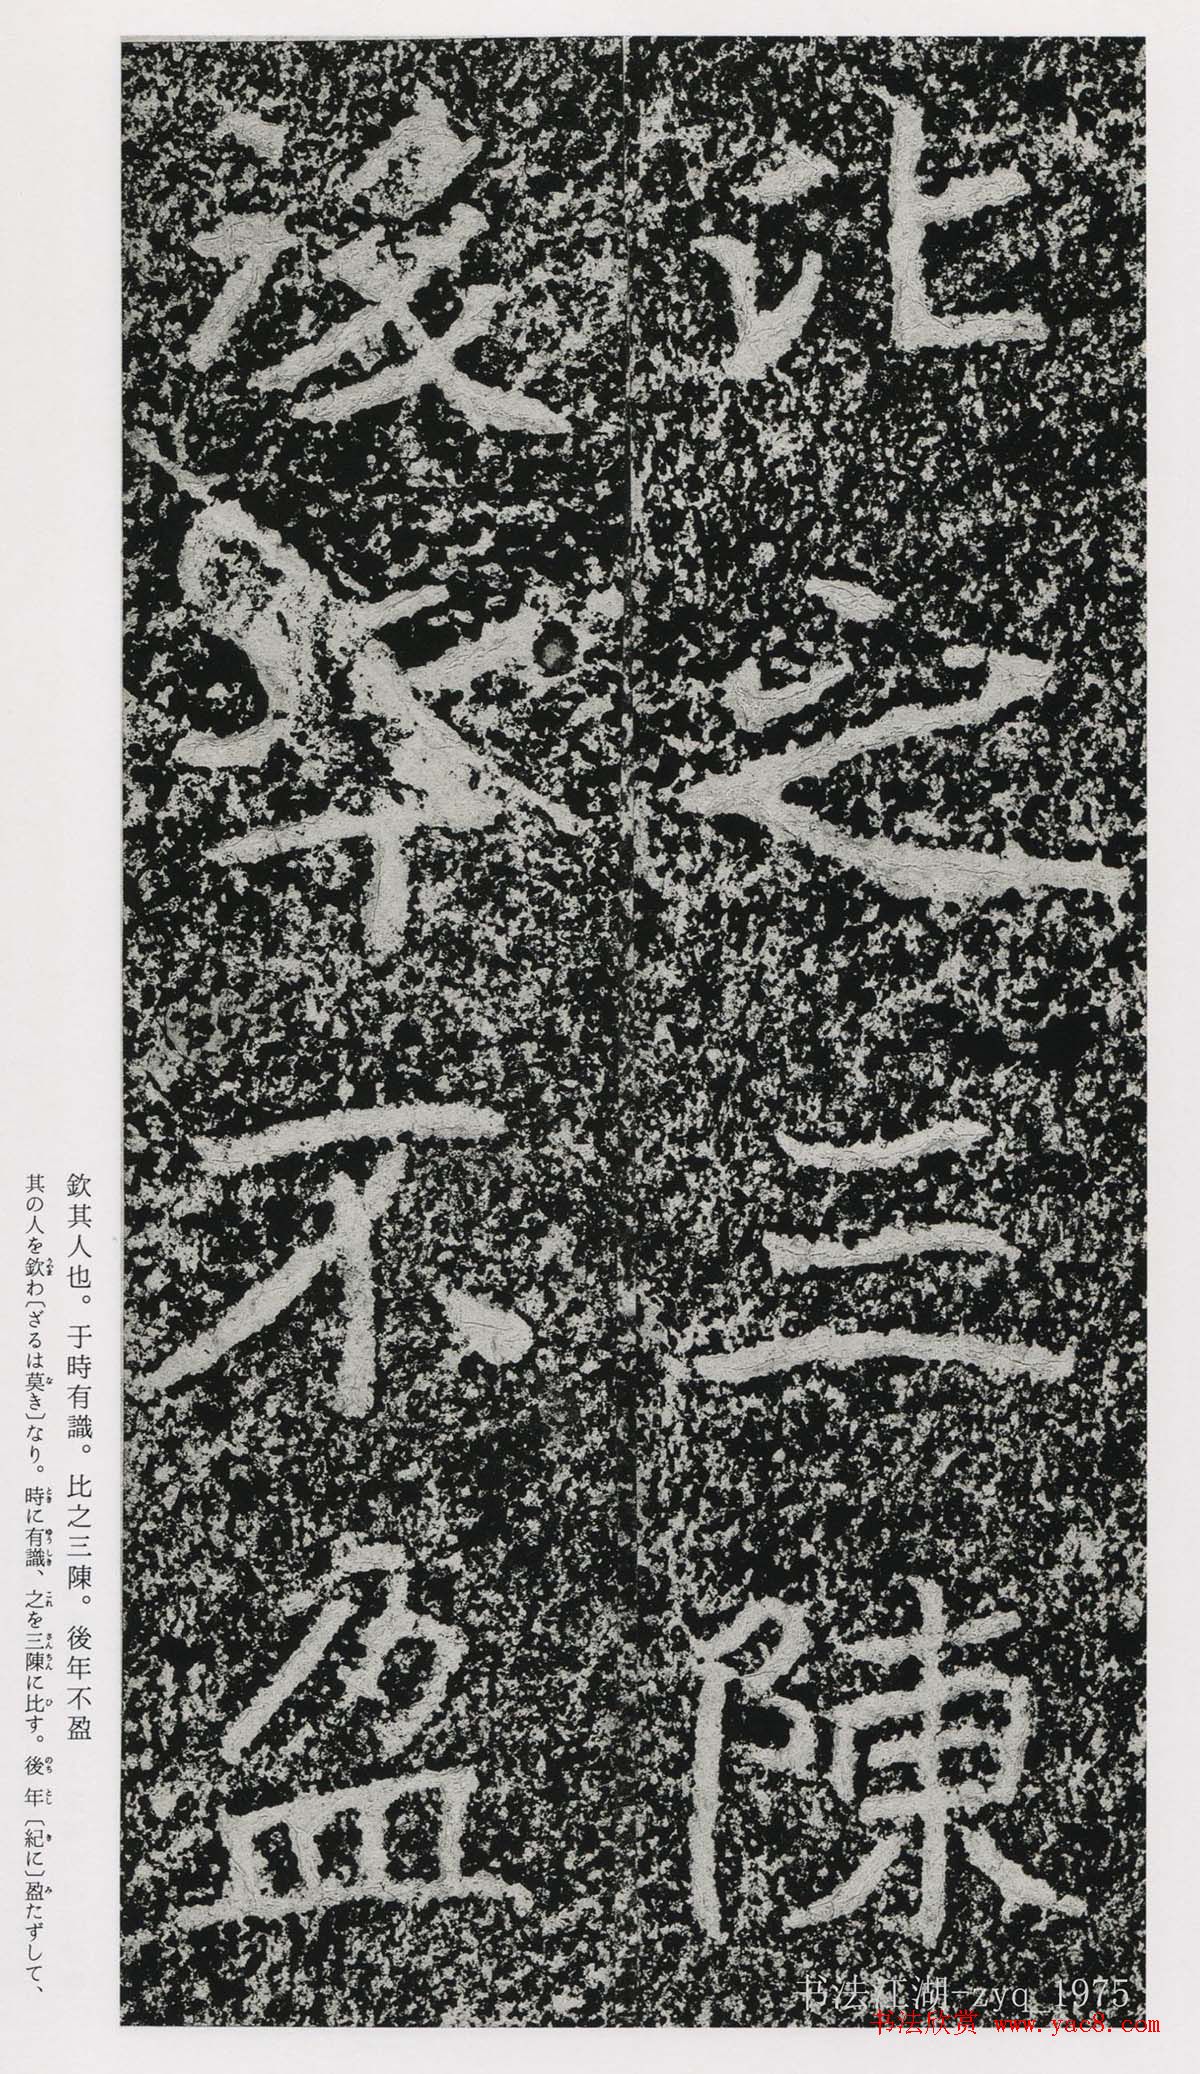 比之三陳
後年不盈
欽其人也。于時有識。比之三陳。後年不盈
其の人を欽わ〔ざるは莫き〕なり。時に有識、之を三陳に比す。後年〔紀に〕盈たずして、
书法江湖-zyq_1975
书法欣赏 www.yac8.com